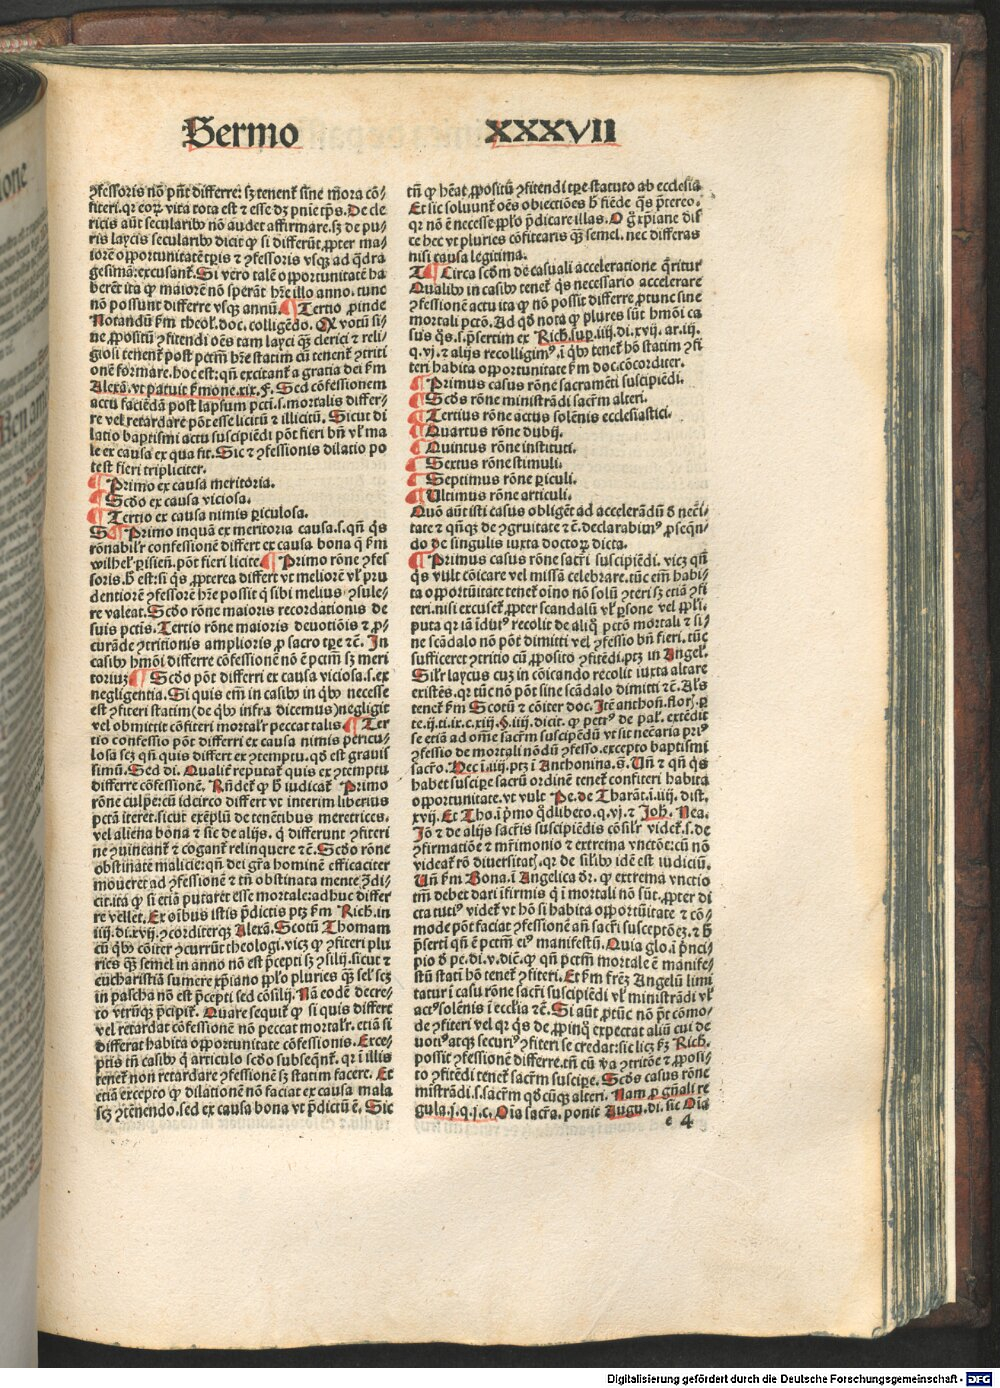 Sermo XXXVII
ꝯfessoris nõ pñt differre: sꝫ tenent̃ sine mora cõ-
fiteri. qꝛ eoꝝ vita tota est ⁊ esse dꝫ pnie tp̃s. De cle
ricis aũt secularibꝰ nõ audet affirmare. sꝫ de pu-
ris laycis secularibꝰ dicit ꝙ si differũt ꝓpter ma-
iorẽ opportunitatẽ tp̃is ⁊ ꝯfessoris vsqꝫ ad q̃dra
gesimã: excusant̃. Si vero talẽ opportunitatẽ ha
berẽt ita ꝙ maiorẽ nõ sperãt hr̃e illo anno. tunc
nõ possunt differre vsqꝫ annũ. ¶ Tertio ꝓinde
Notandũ ẜm theol. doc. colligẽdo. Qꝙ votũ si-
ue ꝓpositũ ꝯfitendi oẽs tam layci qꝫ clerici ⁊ reli-
giosi tenent̃ post pctm̃ hr̃e statim cũ tenent̃ ꝯtriti
onẽ formare. hoc est: qñ excitant̃ a gratia dei ẜm
Alexã. vt patuit ẜmone. xix. F. Sed cõfessionem
actu faciẽdã post lapsum pcti. s. mortalis differ-
re vel retardare põt esse licitũ ⁊ illicitũ. Sicut di
latio baptismi actu suscipiẽdi põt fieri bñ vl̃ ma
le ex causa ex qua fit. Sic ⁊ ꝯfessionis dilatio po
test fieri tripliciter.
¶ Primo ex causa meritoria.
¶ Scd̃o ex causa viciosa.
¶ Tertio ex causa nimis ꝑiculosa.
S ¶ Primo inquã ex meritoria causa. s. qñ q̃s
rõnabilr̃ confessionẽ differt ex causa bona q̃ ẜm
wilhel. ꝑisieñ. põt fieri licite. ¶ Primo rõne ꝯfes
soris. h̃ est: si q̃s ꝓpterea differt vt meliorẽ vl̃ pru
dentiorẽ ꝯfessorẽ hr̃e possit q̃ sibi melius ꝯsule-
re valeat. Scd̃o rõne maioris recordationis de
suis pctis. Tertio rõne maioris deuotiõis ⁊ ꝓ-
curãde ꝯtritionis amplioris ꝑ sacro tp̃e ⁊ c̃. In
casibꝰ hmõi differre cõfessionẽ nõ ẽ pctm̃ sꝫ meri
toriuꝫ ¶ Scd̃o põt differri ex causa viciosa. s. ex
negligentia. Si quis em̃ in casibꝰ in q̃bꝰ necesse
est ꝯfiteri statim (de q̃bꝰ infra dicemus) negligit
vel obmittit cõfiteri mortalr̃ peccat talis. ¶ Ter
tio confessio põt differri ex causa nimis pericu-
losa scꝫ qñ quis differt ex ꝯtemptu. qd̃ est grauis
simũ. Sed di. Qualir̃ reputat̃ quis ex ꝯtemptu
differre cõfessionẽ. Rñdet̃ ꝙ h̃ iudicat̃. Primo
rõne culpe: cũ idcirco differt vt interim liberius
pctã iteret. sicut exẽplũ de tenẽtibus meretrices.
vel aliena bona ⁊ sic de alijs. q̃ differunt ꝯfiteri
ne ꝯuincant̃ ⁊ cogant̃ relinquere ⁊ c̃. Scd̃o rõne
obstinate malicie: qñ dei gr̃a hominẽ efficaciter
moueret ad ꝯfessionẽ ⁊ tñ obstinata mente ꝯ̃di-
cit. ita ꝙ si etiã putaret esse mortale: adhuc differ
re vellet. Ex oĩbus istis p̃dictis ptꝫ ẜm Rich. in
iiij. di. xvij. ꝯcorditerqꝫ Alexã. Scotũ Thomam
cũ q̃bꝰ cõiter ꝯcurrũt theologi. vicꝫ ꝙ ꝯfiteri plu
ries qꝫ semel in anno nõ est p̃cepti sꝫ ꝯsilij. sicut ⁊
eucharistiã sumere xp̃iano ꝓpl̃o pluries qꝫ sel̃ scꝫ
in pascha nõ est p̃cepti sed cõsilij. Nã eodẽ decre-
to vtrũqꝫ p̃cipit̃. Quare sequit̃ ꝙ si quis differt
vel retardat cõfessionẽ nõ peccat mortalr̃. etiã si
differat habita opportunitate cõfessionis. Exce-
ptis tñ casibꝰ q̃ articulo scd̃o subseqñt̃. qꝛ ĩ illis
tenet̃ non retardare ꝯfessionẽ sꝫ statim facere. Et
etiã excepto ꝙ dilationẽ nõ faciat ex causa mala
scꝫ ꝯtẽnendo. sed ex causa bona vt p̃dictũ ẽ. Sic
tñ ꝙ hẽat ꝓpositũ ꝯfitendi tp̃e statuto ab ecclesia
Et sic soluunt̃ oẽs obiectiões h̃ fiẽde q̃s p̃tereo.
qꝛ nõ ẽ necesse ꝓpl̃o p̃dicare illas. O g̃ xp̃iane dil̃
te hec vt pluries cõfitearis qꝫ semel. nec differas
nisi causa legitima.
T ¶ Circa scd̃m de casuali acceleratione q̃ritur
Qualibꝰ in casibꝰ tenet̃ q̃s necessario accelerare
ꝯfessionẽ actu ita ꝙ nõ possit differre ꝓtunc sine
mortali pctõ. Ad qd̃ nota ꝙ plures sũt hmõi ca
sus q̃s. s. p̃sertim ex Rich. sup. iiij. di. xvij. ar. iij.
q. vj. ⁊ alijs recolligimꝰ. ĩ q̃bꝰ tenet̃ hõ statim ꝯfi
teri habita opportunitate ẜm doc. cõcorditer.
¶ Primus casus rõne sacramẽti suscipiẽdi.
¶ Scd̃s rõne ministrãdi sacr̃m alteri.
¶ Tertius rõne actus solẽnis ecclesiastici.
¶ Quartus rõne dubij.
¶ Quintus rõne instituti.
¶ Sextus rõne stimuli.
¶ Septimus rõne ꝑiculi.
¶ Ultimus rõne articuli.
Quõ aũt isti casus obligẽt ad accelerãdũ d̃ nec̃i-
tate ⁊ qñqꝫ de ꝯgruitate ⁊ c̃. declarabimꝰ ꝓseqñ-
do de singulis iuxta doctoꝝ dicta.
¶ Primus casus rõne sacr̃i suscipiẽdi. vicꝫ qñ
q̃s vult cõicare vel missã celebrare. tũc em̃ habi-
ta opportũitate tenet̃ oĩno nõ solũ ꝯteri sꝫ etiã ꝯfi
teri. nisi excuset̃ ꝓpter scandalũ vl̃ ꝑsone vel ꝓpl̃i.
puta qꝛ iã ĩdutꝰ recolit de aliq̃ pctõ mortali ⁊ si-
ne scãdalo nõ põt dimitti vel ꝯfessio bñ fieri. tũc
sufficeret ꝯtritio cũ ꝓposito ꝯfitẽdi. ptꝫ in Angel.
Silr̃ laycus cuꝫ in cõicando recolit iuxta altare
existẽs. qꝛ tũc nõ põt sine scãdalo dimitti ⁊ c̃. Als̃
tenet̃ ẜm Scotũ ⁊ cõiter doc. Itẽ anthoñ. floꝝ. p̃
te. ij. ti. ix. c. xiij. §. iiij. dicit. ꝙ petrꝰ de pal. extẽdit
se etiã ad om̃e sacr̃m suscipẽdũ vt sit nec̃aria priꝰ
ꝯfessio de mortali nõdũ ꝯfesso. excepto baptismi
sacr̃o. Hec ĩ. iiij. ptꝫ ĩ Anthonina. s̃. Uñ ⁊ qñ q̃s
habet suscipe sacrũ ordinẽ tenet̃ confiteri habita
opportunitate. vt vult Pe. de Tharãt. ĩ. iiij. dist.
xvij. Et Tho. ĩ p̃mo q̃dlibeto. q. vj. ⁊ Joh̃. Nea.
Iõ ⁊ de alijs sacr̃is suscipiẽdis cõsilr̃ videt̃. s. de
ꝯfirmatiõe ⁊ mr̃imonio ⁊ extrema vnctõe: cũ nõ
videat̃ rõ diuersitat̃. qꝛ de silibꝰ idẽ est iudiciũ.
Uñ ẜm Bona. ĩ Angelica dr̃. ꝙ extrema vnctio
tm̃ debet dari ĩfirmis q̃ ĩ mortali nõ sũt. ꝓpter di
cta tutiꝰ videt̃ vt hõ si habita opportũitate ⁊ cõ-
mode põt faciat ꝯfessionẽ añ sacr̃i susceptõeꝫ. ⁊ h̃
p̃serti qñ ẽ pctm̃ eiꝰ manifestũ. Quia glo. ĩ p̃nci-
pio d̃ pe. di. v. diẽ. ꝙ qñ pctm̃ mortale ẽ manife-
stũ stati hõ tenet̃ ꝯfiteri. Et ẜm frẽꝫ Angelũ limi
tatur ĩ casu rõne sacr̃i suscipiẽdi vl̃ ministrãdi vl̃
actꝰ solẽnis ĩ eccl̃ia ⁊ c̃. Si aũt ꝓtũc nõ p̃t cõmo-
de ꝯfiteri vel qꝛ q̃s de ꝓpinq̃ expectat aliũ cui de
uotiꝰ atqꝫ securiꝰ ꝯfiteri se credat: sic licꝫ ẜꝫ Rich.
possit ꝯfessionẽ differre. tñ cũ ṽa ꝯtritõe ⁊ ꝓposi-
to ꝯfitẽdi tenet̃ sacr̃m suscipe. Scd̃s casus rõne
mistrãdi. s. sacr̃m qd̃ cũqꝫ alteri. Nam ꝑ gñali re
gula. j. q. j. c. Oia sacr̃a. ponit Augu. di. sic Oia
e 4
Digitalisierung gefördert durch die Deutsche Forschungsgemeinschaft - DFG